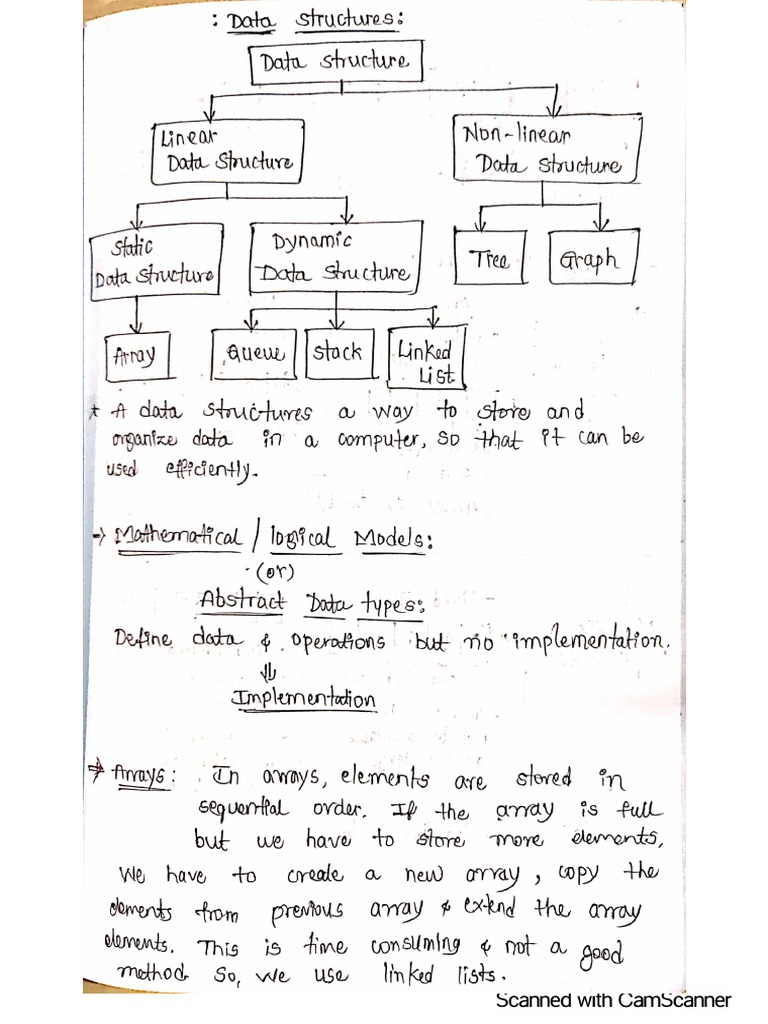 : Data Structures:
Data structure
Linear
Data structure
Non-linear
Data structure
Static
Data structure
Dynamic
Data structure
Tree
Graph
Array
Queue
Stack
Linked
List
* A data structures a way to store and
organize data in a computer, so that it can be
used efficiently.
→ Mathematical / logical Models:
(or)
Abstract Data types:
Define data & operations but no implementation.
⇓
Implementation
→ Arrays: In arrays, elements are stored in
sequential order. If the array is full
but we have to store more elements,
We have to create a new array, copy the
elements from previous array & extend the array
elements. This is time consuming & not a good
method. So, we use linked lists.
Scanned with CamScanner